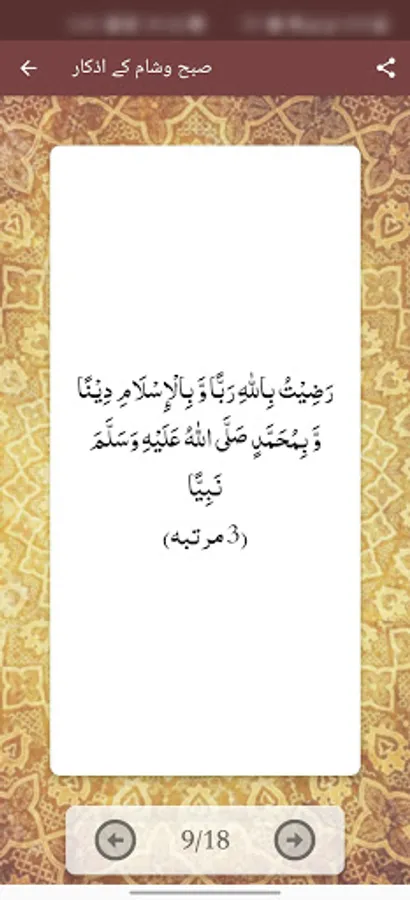 صبح وشام کے اذکار
رَضِيْتُ بِاللّٰهِ رَبًّا وَّ بِالْاِسْلَامِ دِيْنًا
وَّ بِمُحَمَّدٍ صَلَّى اللّٰهُ عَلَيْهِ وَسَلَّمَ
نَبِيًّا
(3 مرتبه)
9/18